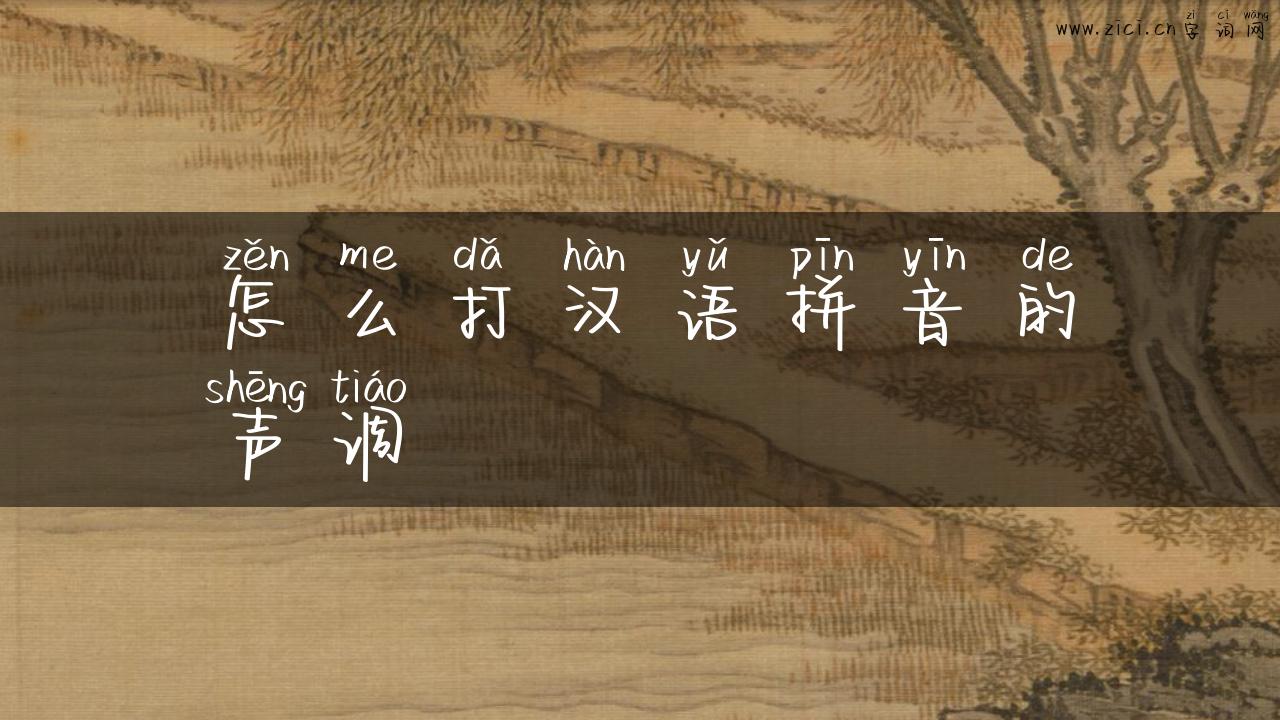 zì cí wǎng
www.zici.cn 字 词 网
zěn me dǎ hàn yǔ pīn yīn de
怎 么 打 汉 语 拼 音 的
shēng tiáo
声 调